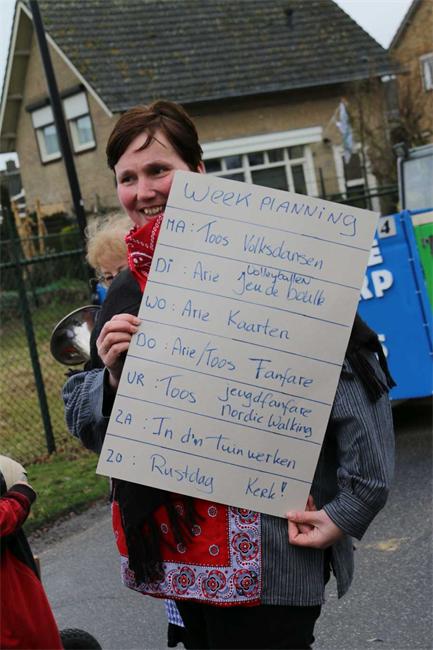 WEEK PLANNING
MA: Toos Volksdansen
DI: Arie Volleyballen
jeu de boulle
WO: Arie Kaarten
DO: Arie/Toos Fanfare
VR: Toos jeugdfanfare
Nordic Walking
ZA: In d'n Tuin werken
ZO: Rustdag Kerk!
4
E
RP